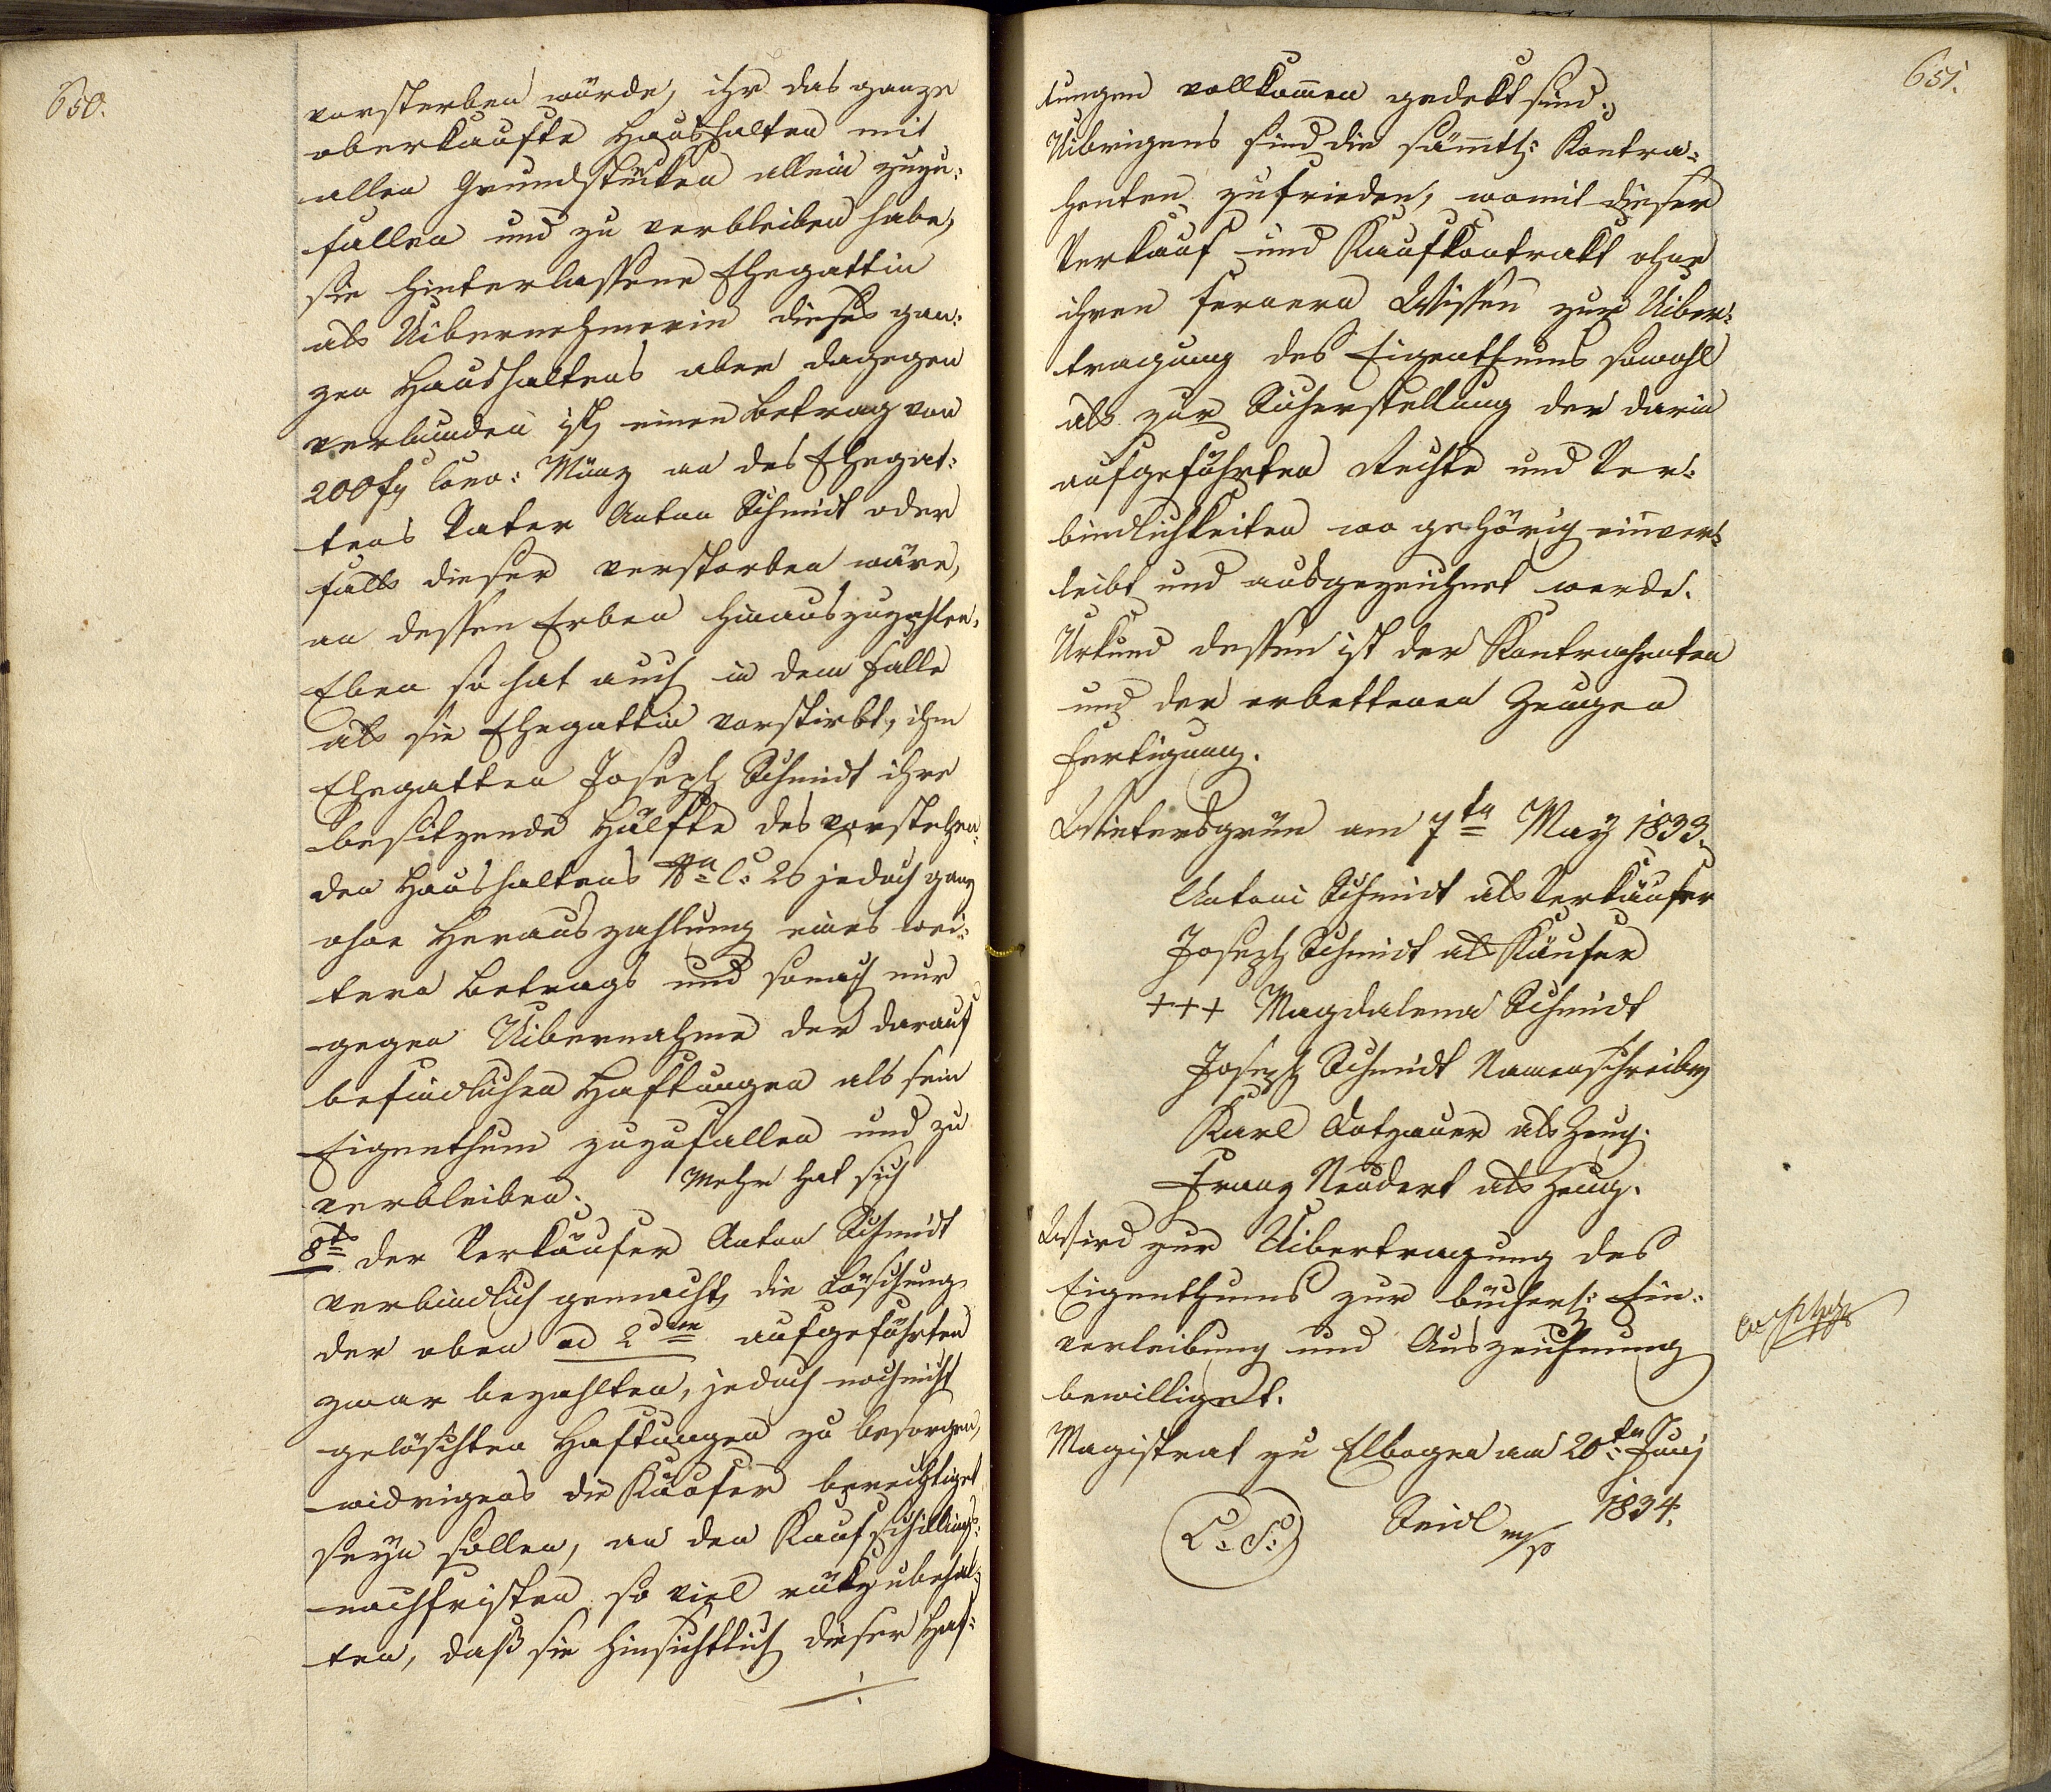 650.
vorsterben würde, ihr das ganze
oberkaufte Haushalten mit
allen Grundstüken allein zuzu-
fallen und zu verbleiben habe,
sie hinterlassene Ehegattin
als Uibernehmerin dieses gan-
zen Haushaltens aber dagegen
verbunden ist, einen Betrag von
200 f Conv: Münz an des Ehegat-
tens Vater Anton Schmidt oder
falls dieser verstorben wäre,
an dessen Erben hinauszuzahlen.
Eben so hat auch in dem Falle
als sie Ehegattin vorstirbt, ihm
Ehegatten Joseph Schmidt ihre
besitzende Hälfte des vorstehen-
den Haushaltens Nro C. 26 jedoch ganz
ohne Herauszahlung eines wei-
tern Betrags und sonach nur
gegen Uibernahme der darauf
befindlichen Haftungen als sein
Eigenthum zuzufallen und zu
verbleiben. Mehr hat sich
8ts der Verkäufer Anton Schmidt
verbindlich gemacht, die Löschung
der oben ad 2dum aufgeführten
zwar bezahlten, jedoch noch nicht
gelöschten Haftungen zu besorgen,
widrigens die Käufer berechtiget
seyn sollen, an den Kaufschillings-
nachfristen so viel rükzubehal-
ten, daß sie hinsichtlich dieser Haf-
./.
651.
tungen vollkommen gedekt sind.
Uibrigens sind die sämtl: Kontra-
henten zufrieden, womit dieser
Verkauf und Kaufkontrakt ohne
ihren fernern Wissen zur Uiber-
tragung des Eigenthums sowohl
als zur Sicherstellung der darin
aufgeführten Rechte und Ver-
bindlichkeiten wo gehörig einver-
leibt und ausgezeichnet werde.
Urkund dessen ist der Kontrahenten
und der erbettenen Zeugen
Fertigung.
Wintersgrün am 7tn May 1833.
Antoni Schmidt als Verkäufer
Joseph Schmidt als Käufer
+++ Magdalena Schmidt
Joseph Schmidt Namenschreiber
Karl Dotzauer als Zeug.
Franz Neudert als Zeug.
Wird zur Uibertragung des
Eigenthums zur bücherl: Ein-
verleibung und Auszeichnung
bewilliget.
Magistrat zu Elbogen am 20tn Juny
1834.
(L.S.) Seidl m/p